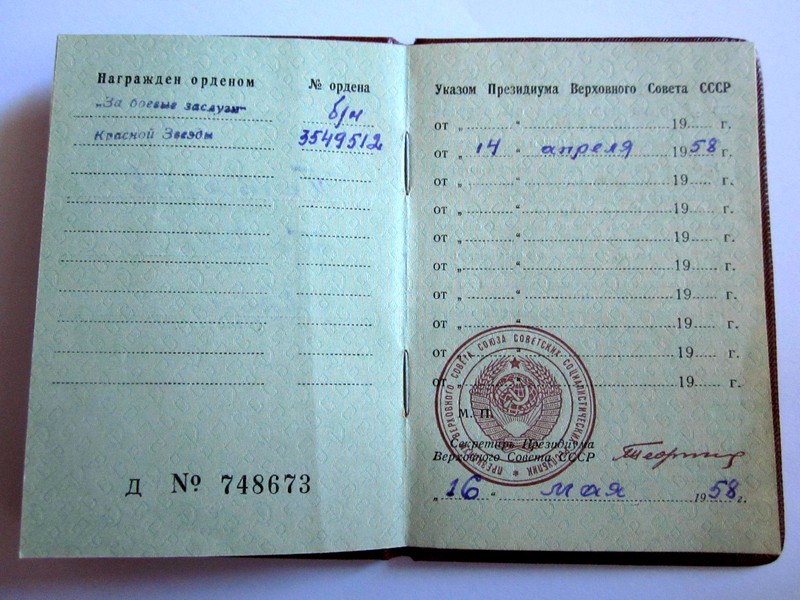 Награжден орденом № ордена
„За боевые заслуги“ б/н
Красной Звезды 3549512
Д № 748673
Указом Президиума Верховного Совета СССР
от „ “ 19 г.
от „ 14 “ апреля 1958 г.
от „ “ 19 г.
от „ “ 19 г.
от „ “ 19 г.
от „ “ 19 г.
от „ “ 19 г.
от „ “ 19 г.
от „ “ 19 г.
от „ “ 19 г.
ПРЕЗИДИУМ ВЕРХОВНОГО СОВЕТА СОЮЗА СОВЕТСКИХ СОЦИАЛИСТИЧЕСКИХ РЕСПУБЛИК
М. П.
Секретарь Президиума
Верховного Совета СССР
„ 16 “ мая 1958 г.